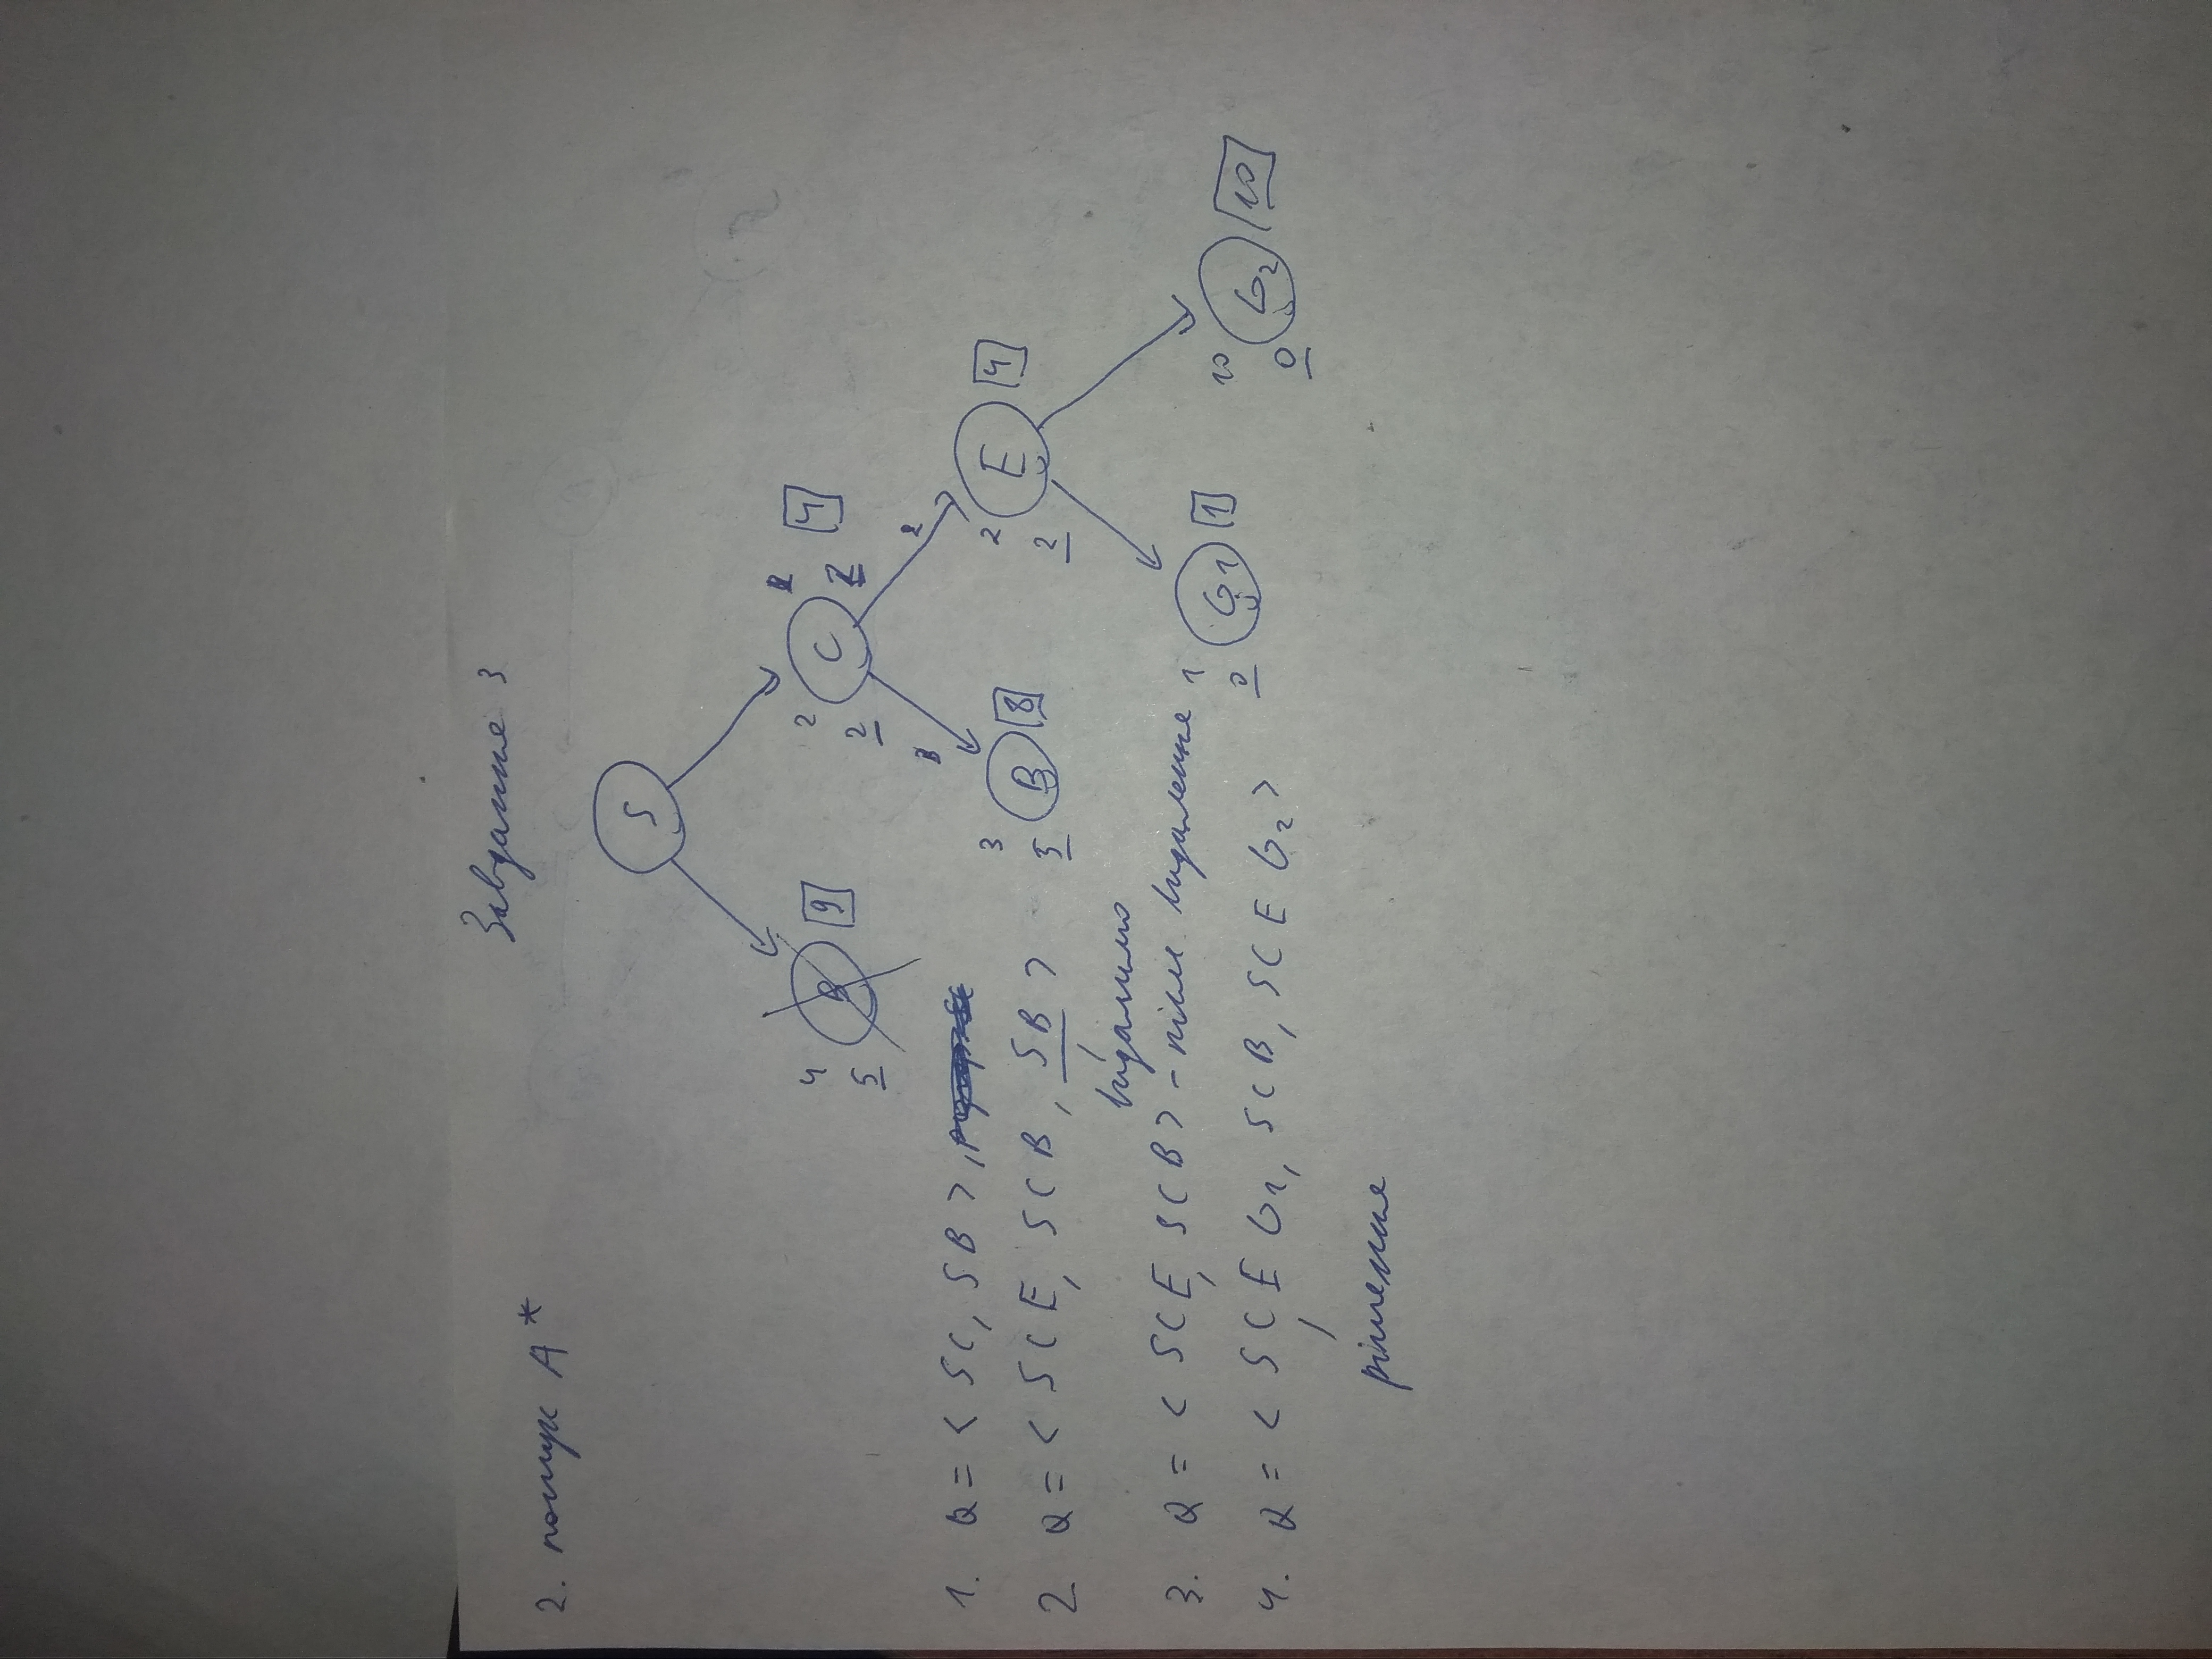 Завдання 3
2. пошук A*
S
4 5 B 9
2 2 C 4
3 5 B 8
2 2 E 4
1 0 G1 1
10 0 G2 10
1. Q = < SC, SB >,
2 Q = < SCE, SCB, SB >
видалимо
3. Q = < SCE, SCB > - після видалення
4. Q = < SCEG1, SCB, SCEG2 >
рішення